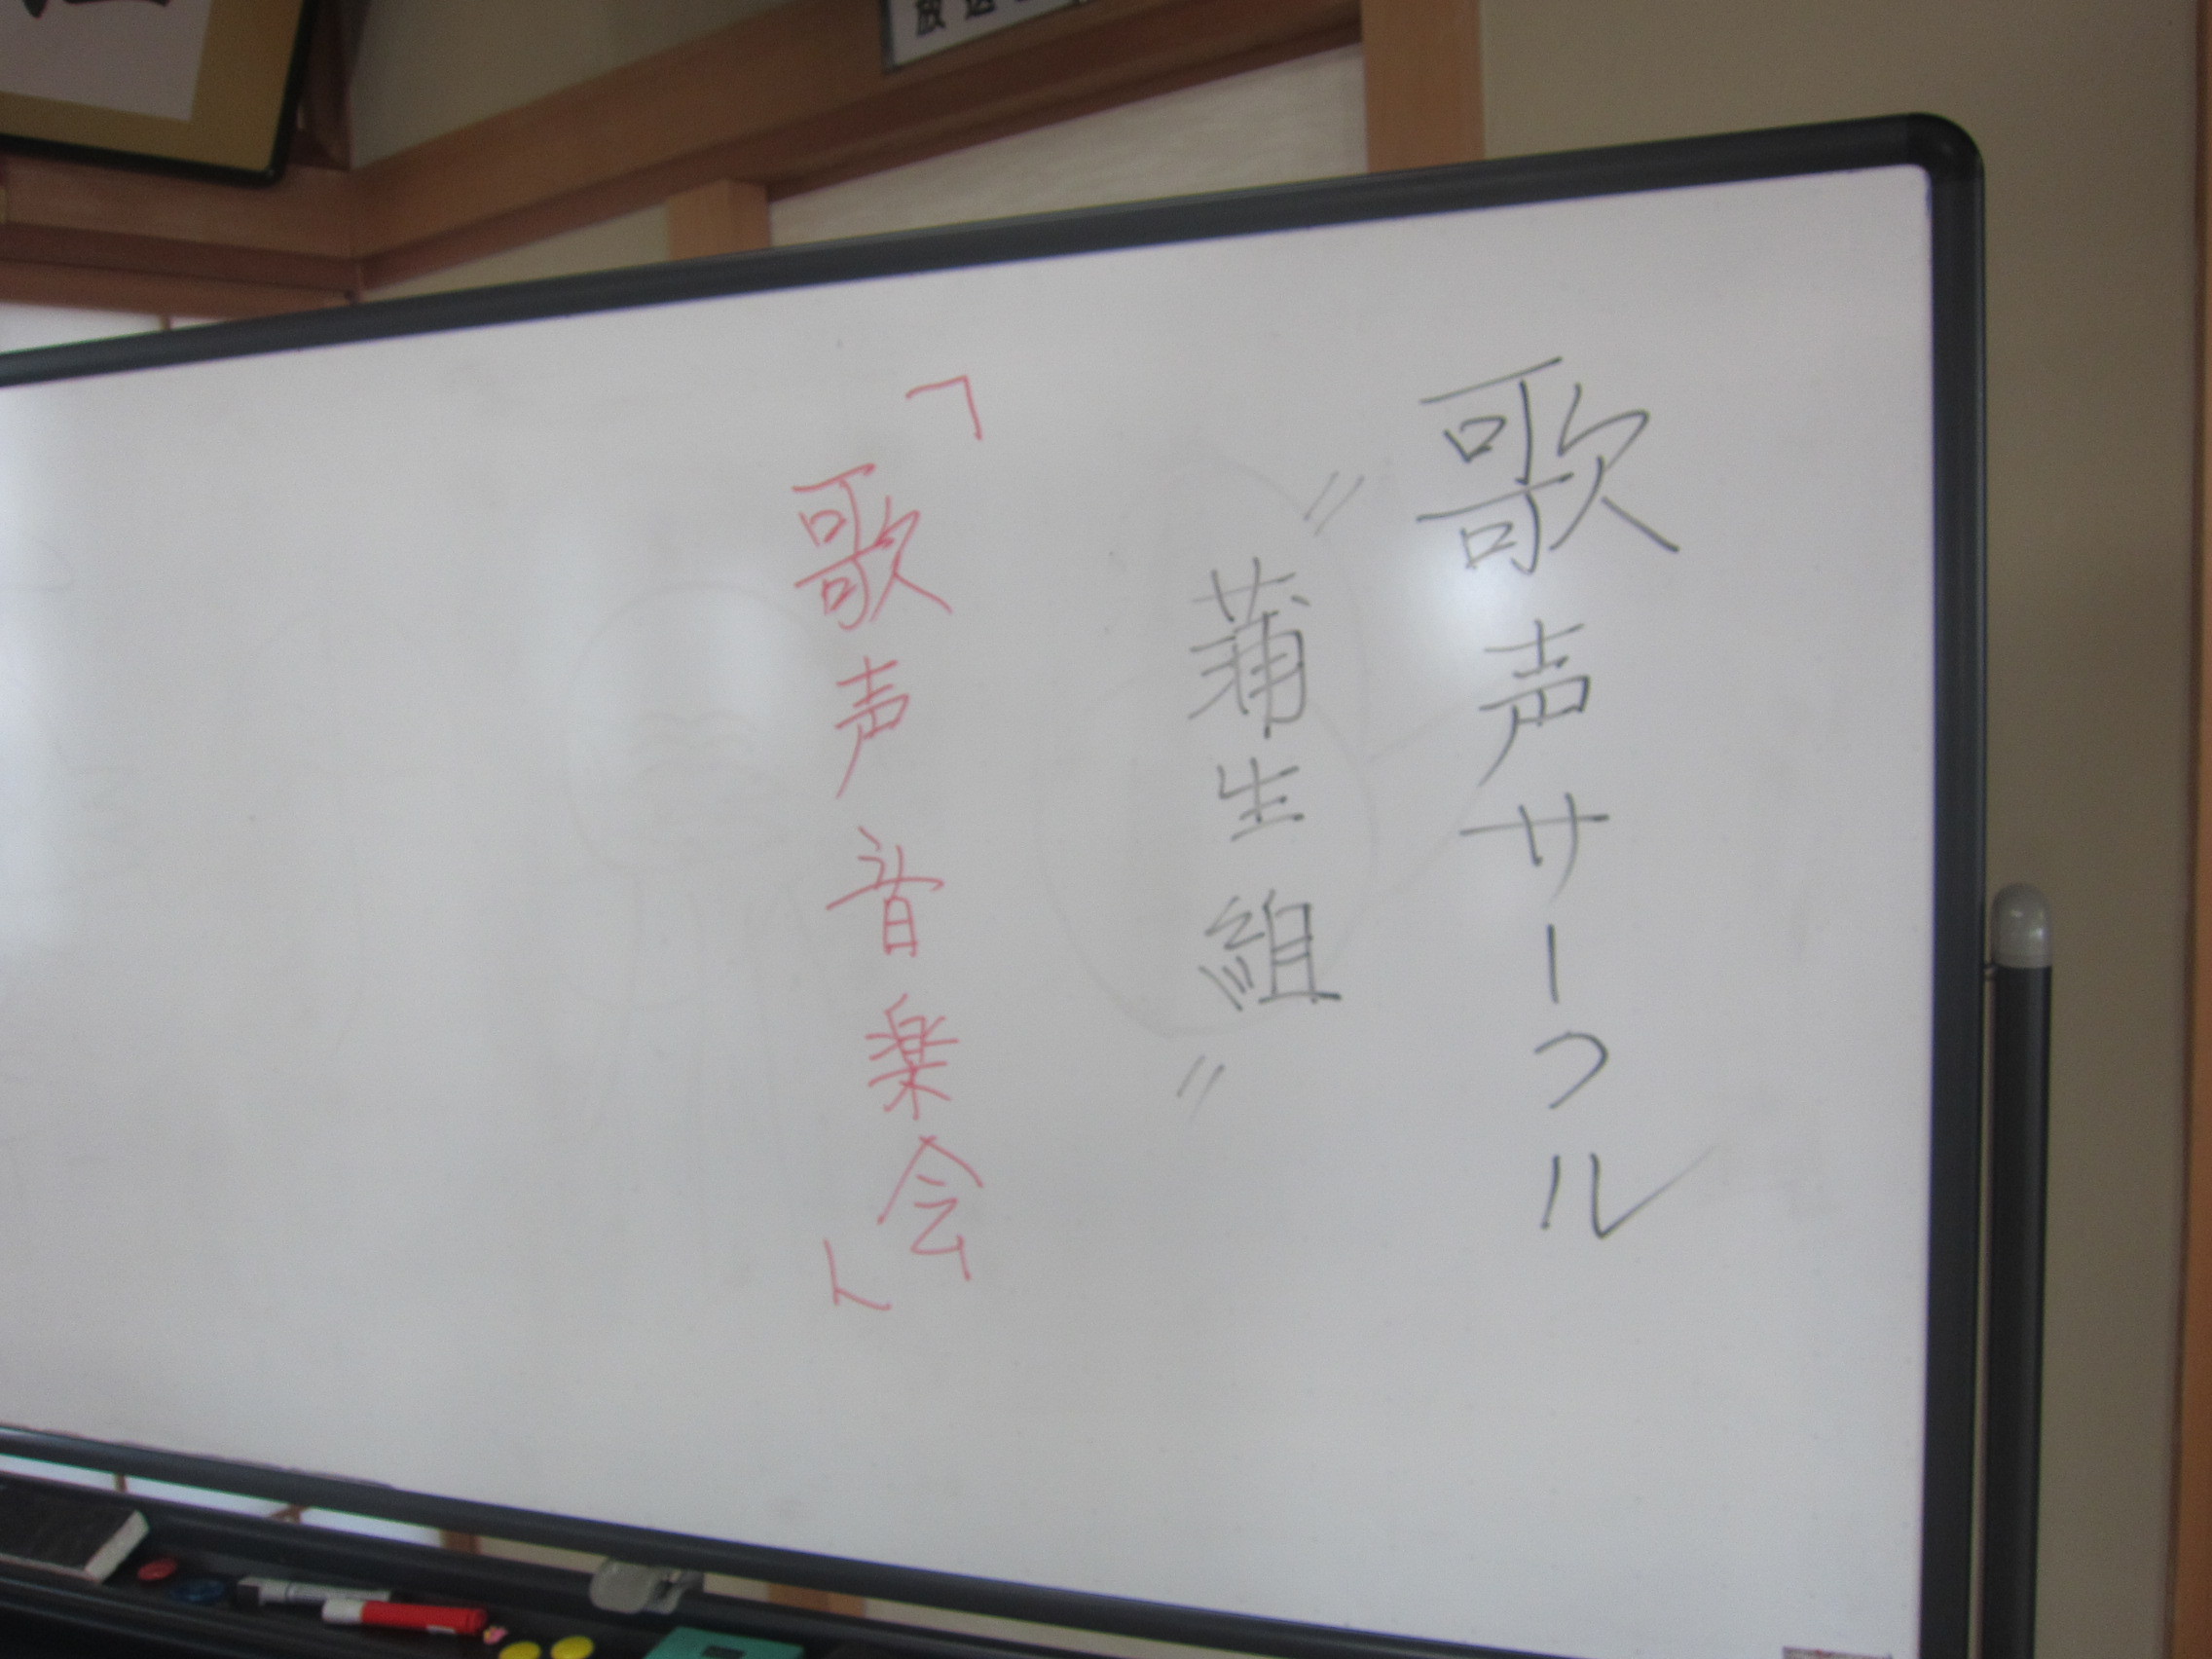 歌声サークル
〃蒲生組〃
「歌声音楽会」
放送